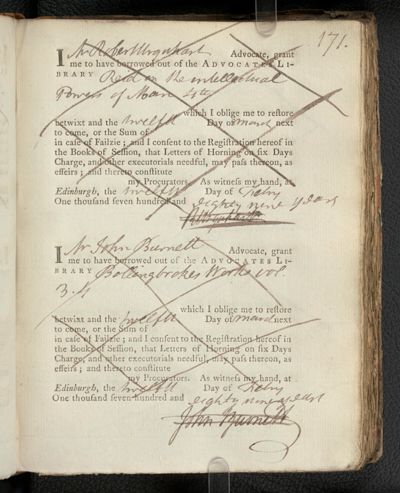 171.
I Mr Robert Urquhart Advocate, grant
me to have borrowed out of the ADVOCATES LI-
BRARY Reid on the intellectual
Powers of Man 4to
which I oblige me to restore
betwixt and the twelfth Day of March next
to come, or the Sum of
in case of Failzie; and I consent to the Registration hereof in
the Books of Session, that Letters of Horning on six Days
Charge, and other executorials needful, may pass thereon, as
effeirs; and thereto constitute
my Procurators. As witness my hand, at
Edinburgh, the twelfth Day of Febry
One thousand seven hundred and eighty nine years
I Mr John Burnett Advocate, grant
me to have borrowed out of the ADVOCATES LI-
BRARY Bollingbrokes Works vol.
3.
which I oblige me to restore
betwixt and the twelfth Day of March next
to come, or the Sum of
in case of Failzie; and I consent to the Registration hereof in
the Books of Session, that Letters of Horning on six Days
Charge, and other executorials needful, may pass thereon, as
effeirs; and thereto constitute
my Procurators. As witness my hand, at
Edinburgh, the twelfth Day of Febry
One thousand seven hundred and eighty nine years
John Burnett